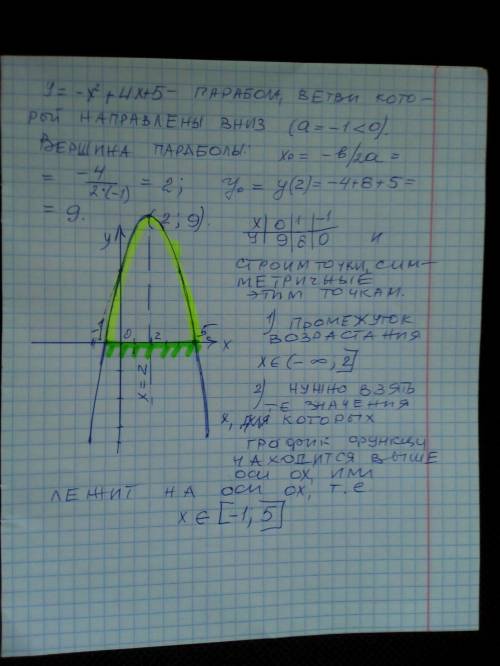 y = -x² + 4x+5 - ПАРАБОЛ, ВЕТВИ КОТО-
РЫЙ НАПРАВЛЕНЫ ВНИЗ (a = -1 < 0).
ВЕРШИНА ПАРАБОЛЫ: x₀ = -b/2a =
= -4/2·(-1) = 2; y₀ = y(2) = -4+8+5 =
= 9.
(2; 9).
x | 0 | 1 | -1
y | 9 | 8 | 0 и
СТРОИМ ТОЧКИ, СИМ-
МЕТРИЧНЫЕ
ЭТИМ ТОЧКАМ.
1) ПРОМЕЖУТОК
ВОЗРАСТАНИЯ
x ∈ (-∞, 2]
2) НУЖНО ВЗЯТЬ
ТЕ ЗНАЧЕНИЯ
x, ДЛЯ КОТОРЫХ
ГРАФИК ФУНКЦИ
НАХОДИТСЯ ВЫШЕ
ОСИ OX, ИЛИ
ЛЕЖИТ НА ОСИ OX, Т.Е
x ∈ [-1, 5]
y
-1 0 2 5 x
x = 2